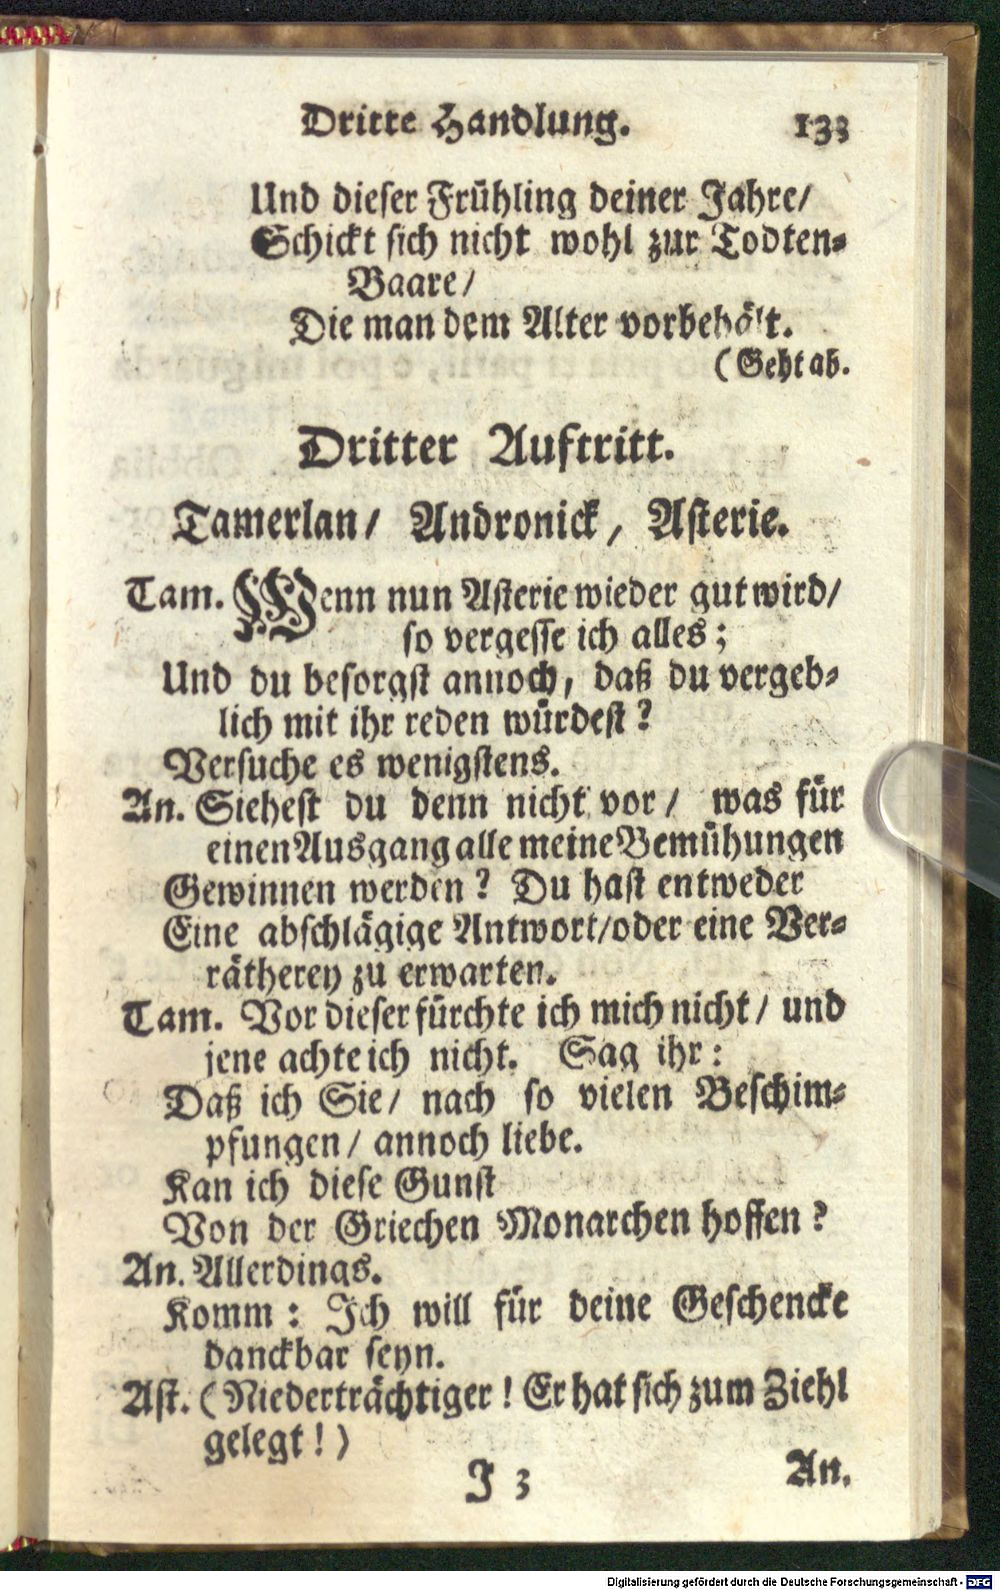 Dritte Handlung. 133
Und dieser Frühling deiner Jahre/
Schickt sich nicht wohl zur Todten-
Baare/
Die man dem Alter vorbehält.
(Geht ab.
Dritter Auftritt.
Tamerlan/ Andronick, Asterie.
Tam. Wenn nun Asterie wieder gut wird/
so vergesse ich alles;
Und du besorgst annoch, daß du vergeb-
lich mit ihr reden würdest?
Versuche es wenigstens.
An. Siehest du denn nicht vor/ was für
einen Ausgang alle meine Bemühungen
Gewinnen werden? Du hast entweder
Eine abschlägige Antwort/oder eine Ver-
rätherey zu erwarten.
Tam. Vor dieser fürchte ich mich nicht/ und
jene achte ich nicht. Sag ihr:
Daß ich Sie/ nach so vielen Beschim-
pfungen/ annoch liebe.
Kan ich diese Gunst
Von der Griechen Monarchen hoffen?
An. Allerdings.
Komm: Ich will für deine Geschencke
danckbar seyn.
Ast. (Niederträchtiger! Er hat sich zum Ziehl
gelegt!)
J 3 An.
Digitalisierung gefördert durch die Deutsche Forschungsgemeinschaft - DFG